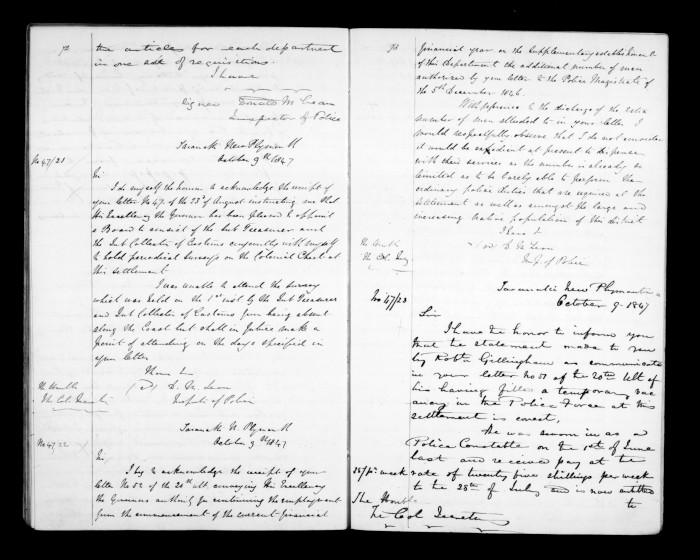 the articles for each department
in one set of requisitions.
I have
Signed Donald McLean
Inspector of Police
Taranaki New Plymouth
October 9th 1847
No 47/21
Sir
I do myself the honor to acknowledge the receipt of
your letter No 47 of the 23d of August instructing me that
His Excellency the Governor has been pleased to appoint
a Board to consist of the Sub Treasurer and
the Sub Collector of Customs conjointly with myself
to hold periodical Surveys on the Colonial Chest at
this settlement
I was unable to attend the survey
which was held on the 1st inst by the Sub Treasurer
and Sub Collector of Customs from being absent
along the Coast but shall in future make a
point of attending on the days specified in
your letter
I have &c
(sd) D. McLean
Inspector of Police
The Honble
The Col. Secretary
Taranaki N. Plymouth
October 9th 1847
No 47/22
Sir,
I beg to acknowledge the receipt of your
letter No 52 of the 20th ult. conveying His Excellency
the Governors authority for continuing the employment
from the commencement of the current financial
financial year on the supplementary establishment
of this department the additional number of men
authorized by your letter to the Police Magistrate of
the 5th December 1846.
With reference to the discharge of the extra
number of men alluded to in your letter I
would respectfully observe that I do not consider
it would be expedient at present to dispense
with their services as the number is already so
limited as to be barely able to perform the
ordinary police duties that are required at the
settlement as well as amongst the large and
increasing native population of this district
I have &c
(sd) D. McLean
Insp. of Police
The Honble
The Col. Secy
Taranaki New Plymouth
October 9. 1847
No 47/23
Sir
I have the honor to inform you
that the statement made to you
by Robt Gillingham as communicated
in your letter no 51 of the 20th Ult of
his having filled a temporary vac
ancy in the Police Force at this
settlement is correct,
He was sworn in as a
Police Constable on the 1st of June
last and received pay at the
25/ pr week rate of twenty five shillings per week
to the 28th of July and is now entitled
to
The Honble
The Col Secretary